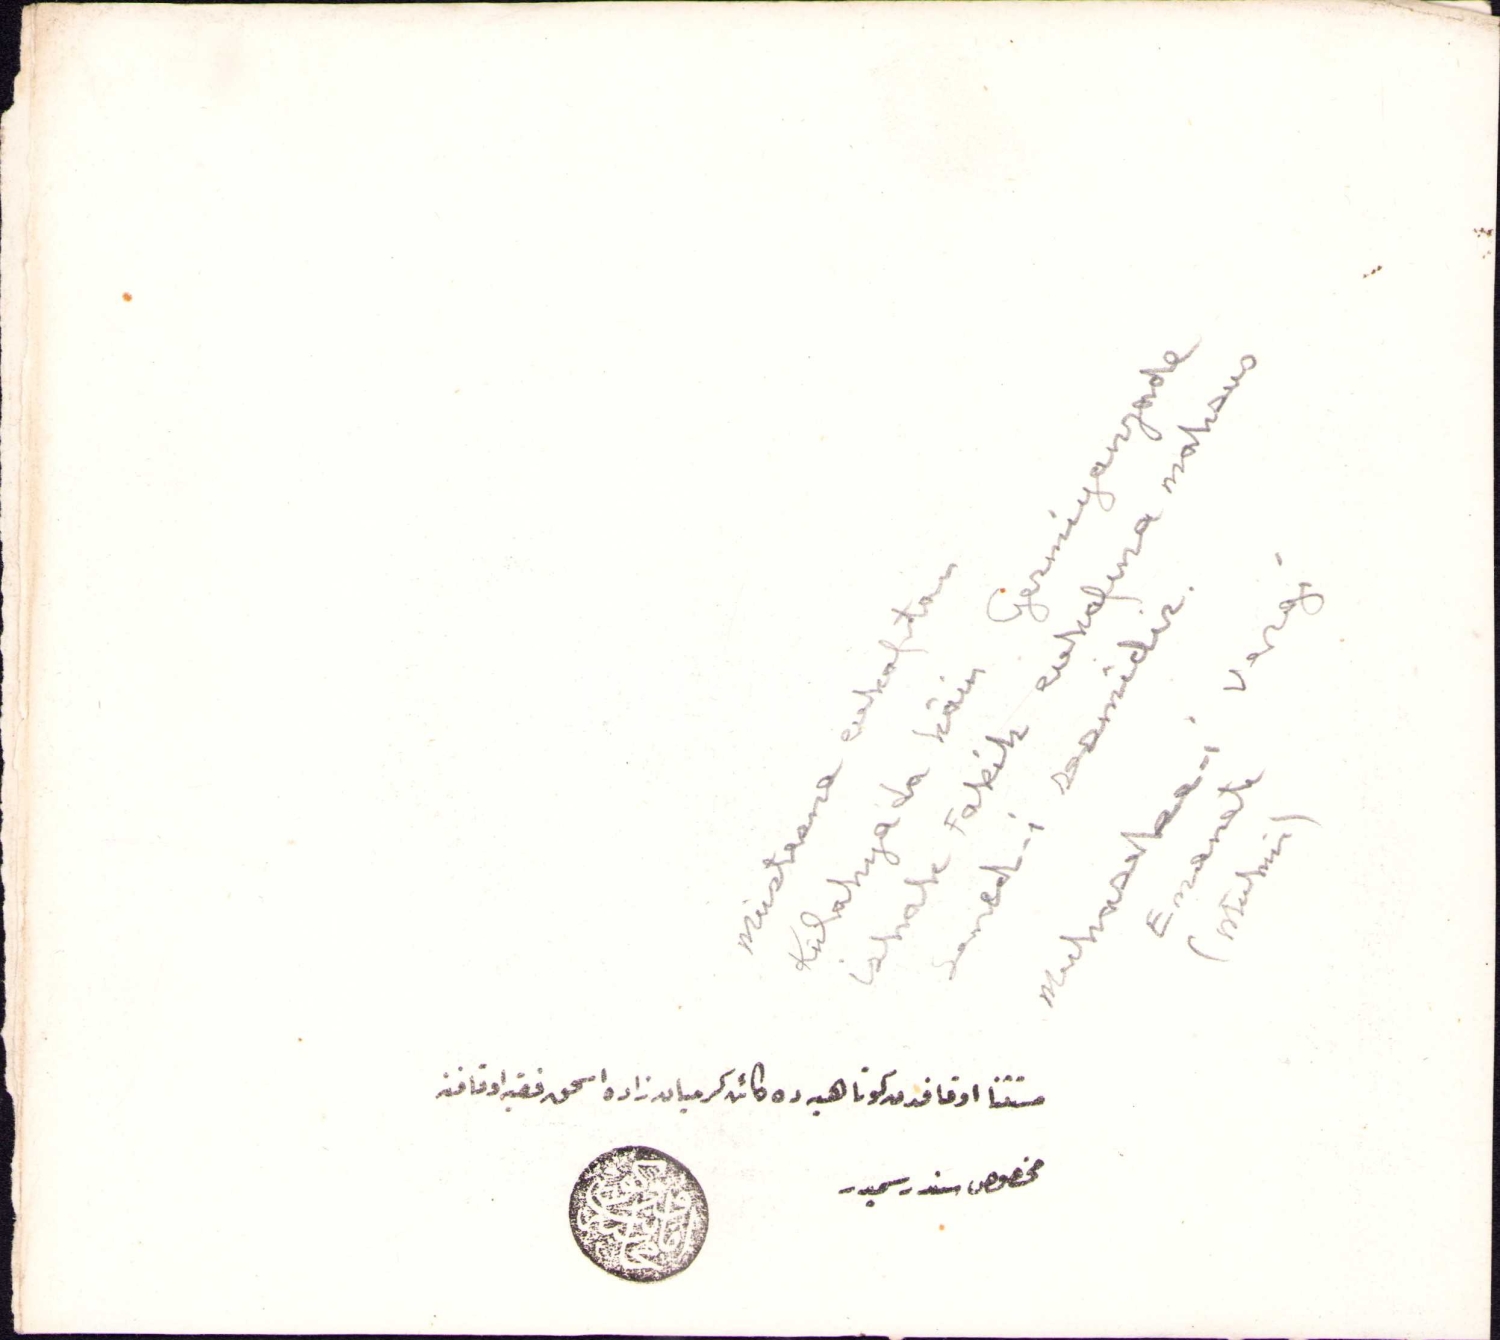 Müstesna evkaftan
Kütahyada kâin Germiyanzade
ishak Fakih evkafına mahsus
sened-i resmidir.
Muhasebe-i Vergi
Emanet
(mühür)
مستثنا اوقافدن كوتاهیه ده كائن كرمیان زاده اسحق فقیه اوقافنه
مخصوص سند رسمیدر